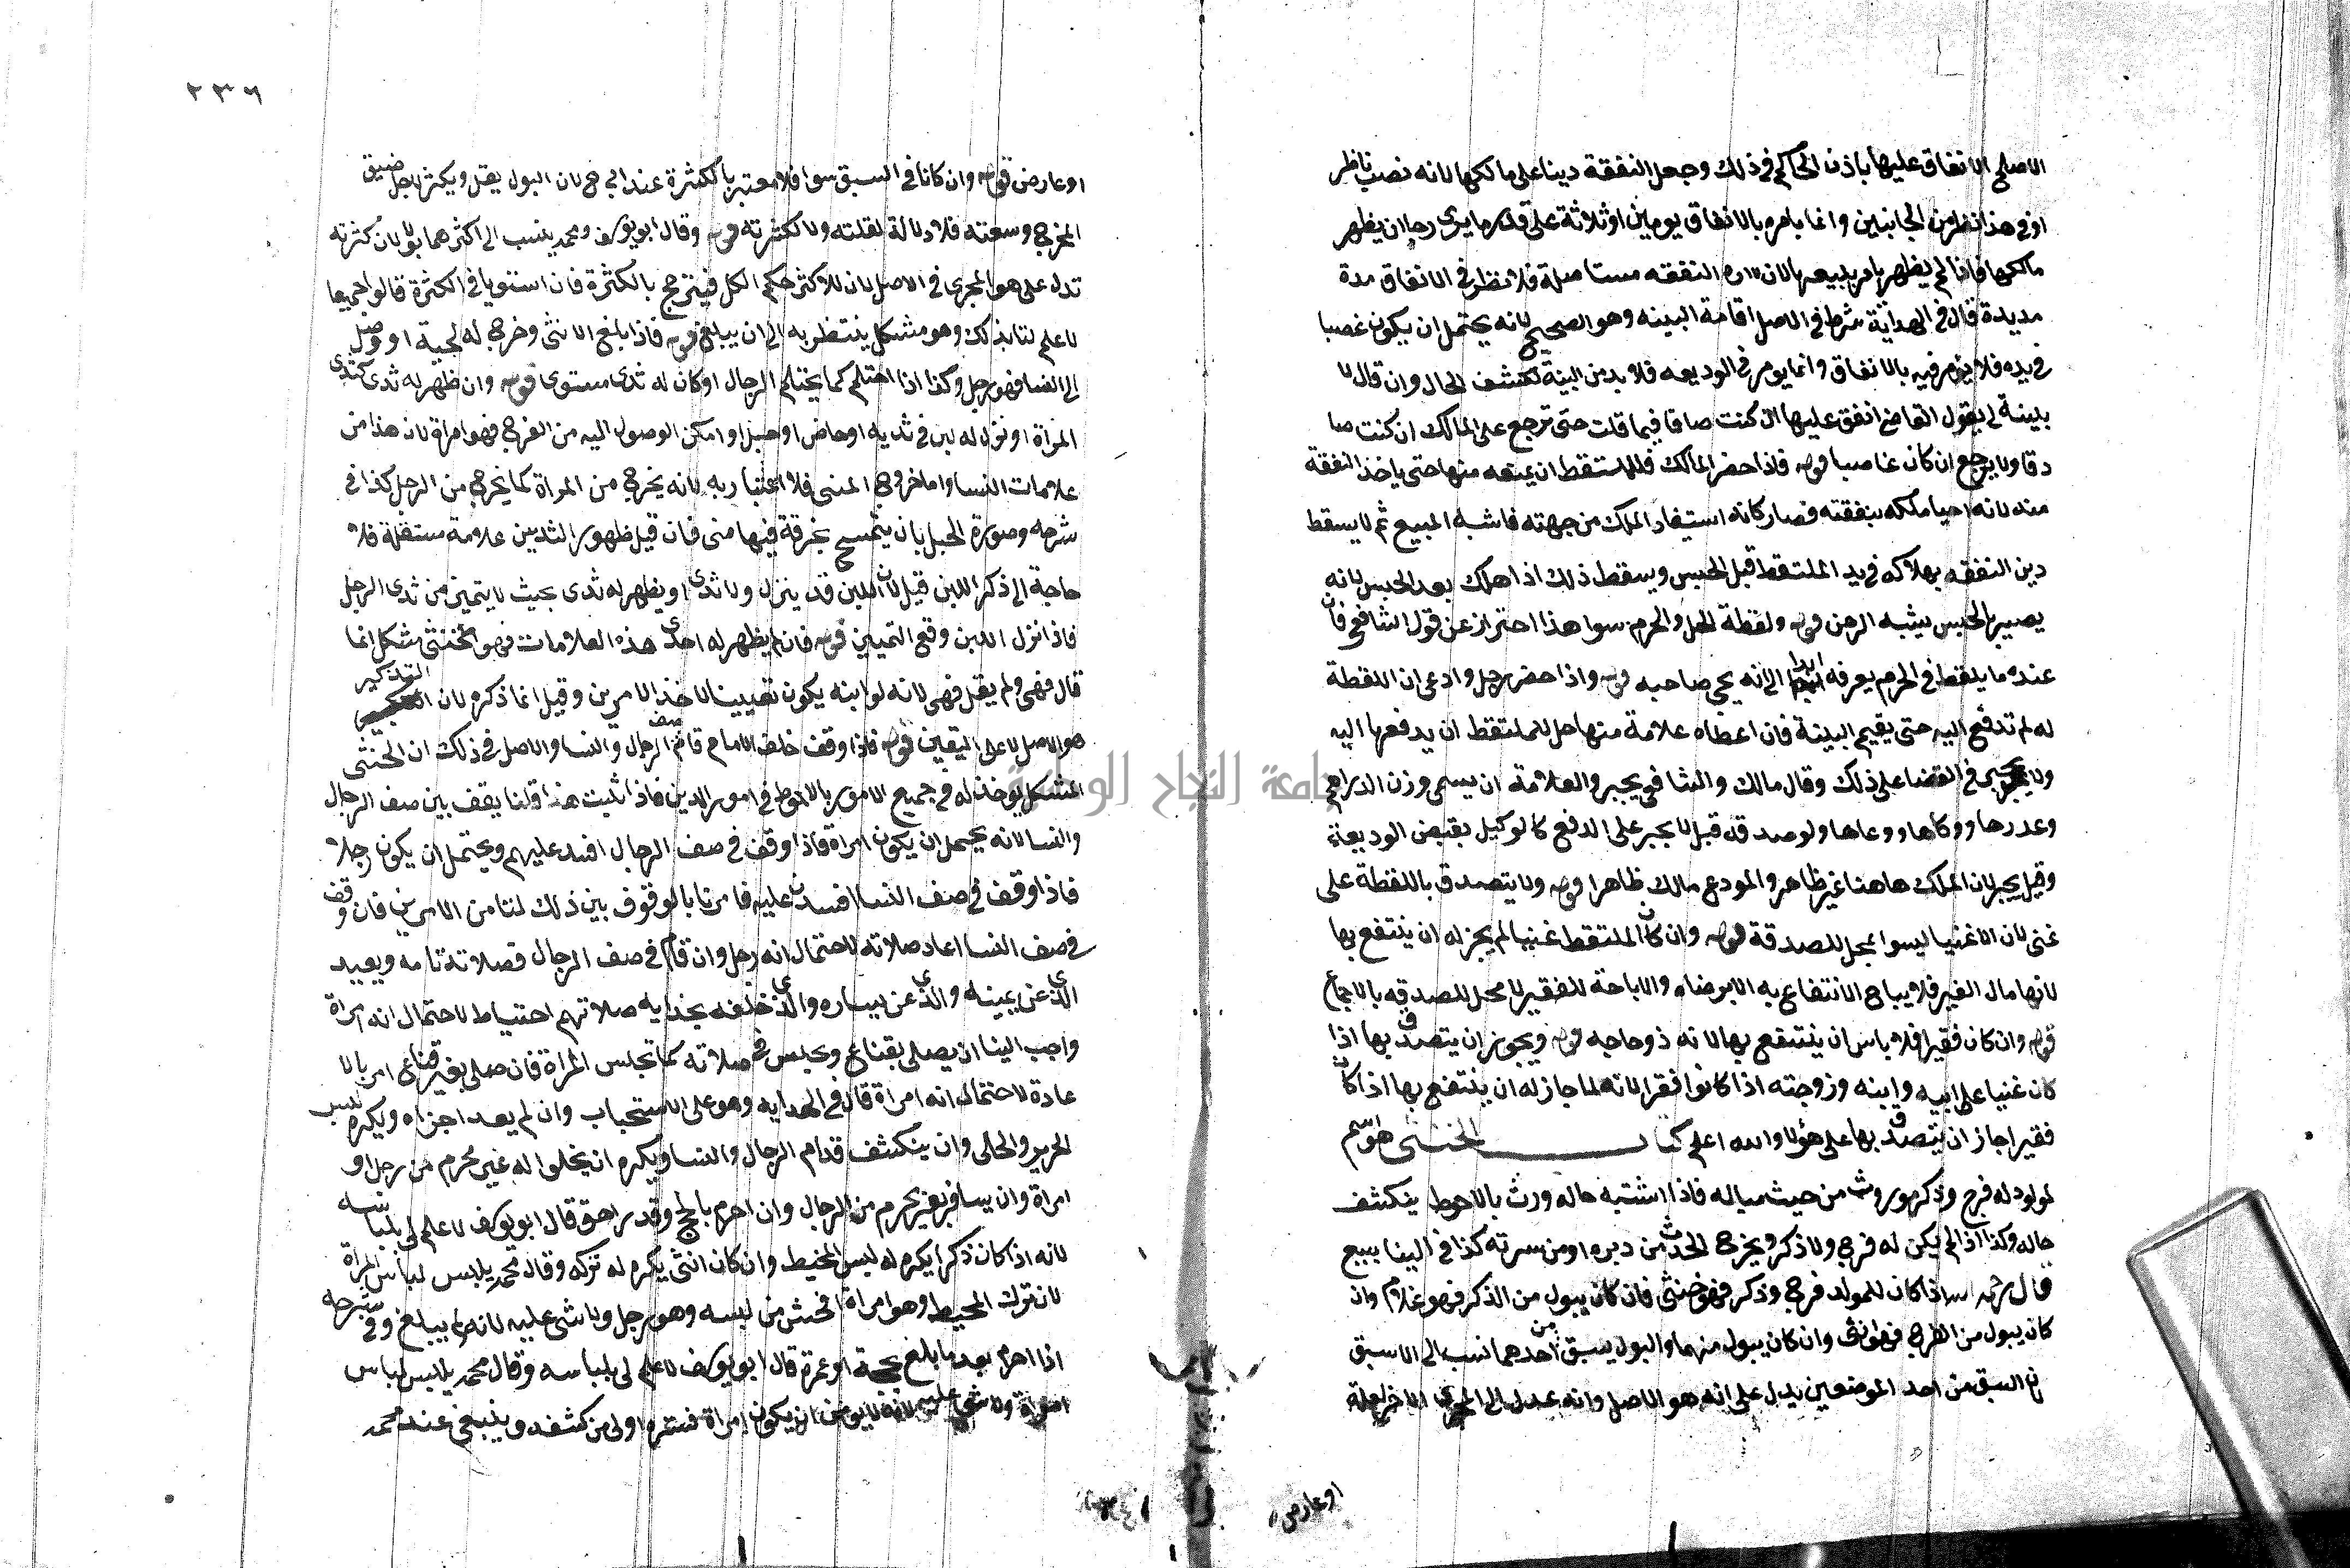 الاصلح الانفاق عليها باذن الحاكم في ذلك وجعل النفقة دينا على مالكها لانه نصب ناظر
اوفي هذا نظر من الجانبين وانما يامره بالانفاق يومين اوثلاثة على قدر ما يرى رجا ان يظهر
مالكها فاذا لم يظهر يامر ببيعها لان دارة النفقه مستاصلة فلا نظر في الانفاق مدة
مديدة قال في الهداية شرط في الاصل اقامة البينه وهو الصحيح لانه يحتمل ان يكون غصبا
في يده فلا يؤمر فيه بالانفاق وانما يومر في الوديعه فلا بد من البينة لكشف الحال وان قال لا
بينة لي يقول القاضي انفق عليها ان كنت صاقا فيما قلت حتى ترجع على المالك ان كنت صا
دقا ولا يرجع ان كان غاصبا قوله فاذا حضر المالك فللملتقط ان يمنعه منها حتى ياخذ النفقة
منه لانه احيا ملكه بنفقته فصار كانه استفاد الملك من جهته فاشبه المبيع ثم لا يسقط
دين النفقه بهلاكه في يد الملتقط قبل الحبس ويسقط ذلك اذا هلك بعد الحبس لانه
يصير بالحبس يشبه الرهن قوله ولقطة الحل والحرم سوا هذا احتراز عن قول الشافعي فان
عنده ما يلتقط في الحرم يعرفه ابدا الى انه يجي صاحبه قوله واذا حضر رجل وادعى ان اللقطة
له لم تدفع اليه حتى يقيم البينة فان اعطاه علامة منها حل للملتقط ان يدفعها اليه
ولا يجبر في القضا على ذلك وقال مالك والشافعي يجبر والعلامة ان يسمى وزن الدراهم
وعددها ووكاها ووعاها ولو صدقه قبل لا يجبر على الدفع كالوكيل بقبض الوديعة
وقيل يجبر لان الملك هاهنا غير ظاهر والمودع مالك ظاهرا قوله ولا يتصدق باللقطة على
غنى لان الاغنيا ليسوا بمحل للصدقة قوله وان كان الملتقط غنيا لم يجز له ان ينتفع بها
لانها مال الغير فلا يباح الانتفاع به الا برضاه والاباحة للفقير لا محل للصدقه بالاجماع
قوله وان كان فقيرا فلا باس ان ينتفع بها لانه ذو حاجه قوله ويجوز ان يتصدق بها اذا
كان غنيا على ابيه وابنه وزوجته اذا كانوا فقرا لانه لما جاز له ان ينتفع بها اذا كان
فقيرا جاز ان يتصدق بها على هؤلا والله اعلم كتاب الخنثى هو اسم
لمولود له فرج وذكر موروث من حيث مباله فاذا اشتبه حاله ورث بالاحوط ينكشف
حاله وكذا اذا لم يكن له فرج ولا ذكر ويخرج الحدث من دبره اومن سرته كذا في الينابيع
قال رحمه الله اذا كان للمولد فرج وذكر فهو خنثى فان كان يبول من الذكر فهو غلام وان
كان يبول من الفرج فهو انثى وان كان يبول منهما والبول يسبق من احدهما نسب الى الاسبق
لان السبق من احد الموضعين يدل على انه هو الاصل وانه عدل الى المجرى الاخر لعلة
او عارض
٢٣٦
اوعارض قوله وان كانا في السبق سوا فلا معتبر بالكثرة عند ابي ح لان البول يقل ويكثر لاجل ضيق
المخرج وسعته فلا دلالة لقلته ولا لكثرته قوله وقال ابو يوسف ومحمد ينسب الى اكثرهما بولا لان كثرته
تدل على هو المجرى في الاصل لان للاكثر حكم الكل فيترجح بالكثرة فان استويا في الكثرة قالوا جميعا
لا علم لنا بذلك وهو مشكل ينتظر به الى ان يبلغ قوله فاذا بلغ الانثى وخرج له لحية او وصل
الى النسا فهو رجل وكذا اذا احتلم كما يحتلم الرجال اوكان له ثدى مستوى قوله وان ظهر له ثدى كثدي
المراة او نزل له لبن في ثديه اوحاض اوحبل او امكن الوصول اليه من الفرج فهو امراة لان هذا من
علامات النسا واما خروج المنى فلا اعتبار به لانه يخرج من المراة كما يخرج من الرجل كذا في
شرحه وصورة الحبل بان يتمسح بخرقة فيها منى فان قيل ظهور الثديين علامة مستقلة فلا
حاجة الى ذكر اللبن قيل لان اللبن قد ينزل ولا ثدى او يظهر له ثدى بحيث لا يتميز من ثدى الرجل
فاذا نزل اللبن وقع التميين قوله فان لم يظهر له احدى هذه العلامات فهو الخنثى مشكل انما
قال فهو ولم يقل فهي لانه لو ابنه يكون تعيينا لاحد الامرين وقيل انما ذكره لان التذكير
هو الاصل لا على التعين قوله فاذا وقف خلف الامام قام صف الرجال والنسا والاصل في ذلك ان الخنثى
المشكل يوخذ له في جميع الامور بالاحوط في امور الدين فاذا ثبت هذا قلنا يقف بين صف الرجال
والنسا لانه يحتمل ان يكون امراة فاذا وقف في صف الرجال افسد عليهم ويحتمل ان يكون رجلا
فاذا وقف في صف النسا افسدن عليه فامرناه بالوقوف بين ذلك لنا من الامرين فان وقف
في صف النسا اعاد صلاته لاحتمال انه رجل وان قام في صف الرجال فصلاته تامه ويعيد
الذي عن يمينه والذي عن يساره والذي خلفه بحذايه صلاتهم احتياط لاحتمال انه امراة
واجب الينا ان يصلى بقناع ويجلس في صلاته كما تجلس المراة فان صلى بغير قناع امر بالا
عادة لاحتمال انه امراة قال في الهدايه وهو على الاستحباب وان لم يعد اجزاه ويكره لبس
الحرير والحلى وان ينكشف قدام الرجال والنسا ويكره ان يخلوا له غير محرم من رجل او
امراة وان يسافر بغير محرم من الرجال وان احرم بالحج وقد راهق قال ابو يوسف لا علم لي بلباسه
لانه اذا كان ذكرا يكره له لبس المخيط وان كان انثى يكره له تركه وقال محمد يلبس لباس المراة
لان ترك المخيط وهو امراة افحش من لبسه وهو رجل ولا شي عليه لانه لم يبلغ وفي شرحه
اذا احرم بعد ما بلغ بحجة او عمرة قال ابو يوسف لا علم لي بلباسه وقال محمد يلبس لباس
امراة ولا شي عليه لانه لا يومن ان يكون امراة فستره اولى من كشفه وينبغي عند محمد
جامعة النجاح الوطنية